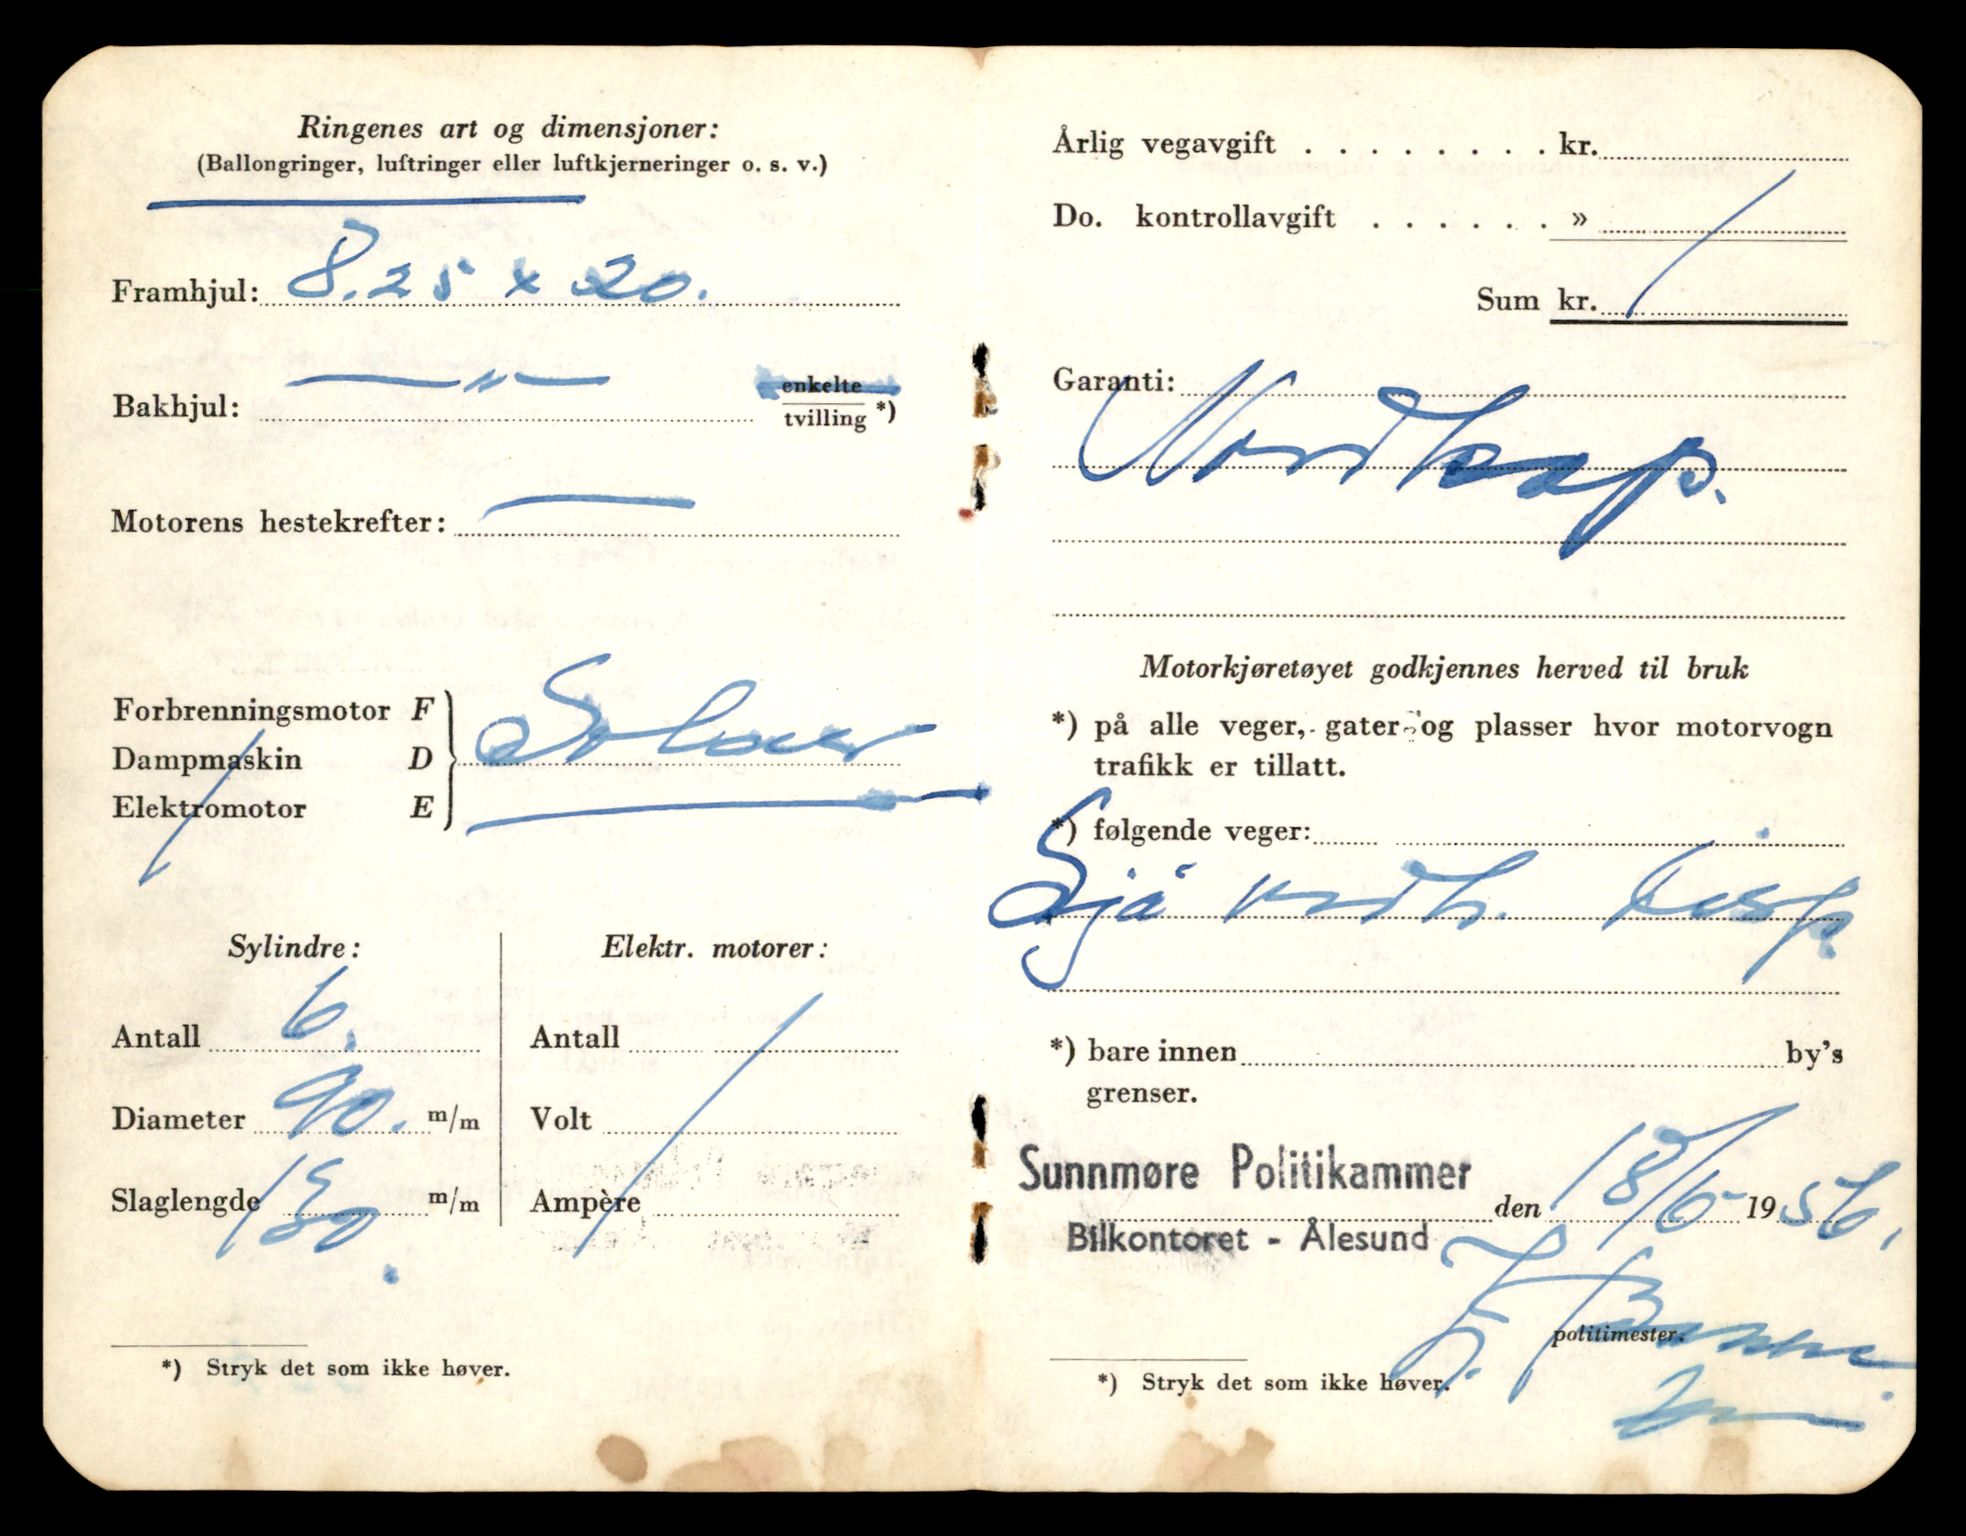 Ringenes art og dimensjoner:
(Ballongringer, luftringer eller luftkjerneringer o. s. v.)
Framhjul: 8.25 x 20.
Bakhjul: —„— enkelte
tvilling *)
Motorens hestekrefter: —
Forbrenningsmotor F
Dampmaskin D
Elektromotor E
Sylindre:
Antall 6.
Diameter 90. m/m
Slaglengde 130. m/m
Elektr. motorer:
Antall
Volt
Ampère
*) Stryk det som ikke høver.
Årlig vegavgift . . . . . . . . kr.
Do. kontrollavgift . . . . . . »
Sum kr.
Garanti:
Nordkap.
Motorkjøretøyet godkjennes herved til bruk
*) på alle veger, gater og plasser hvor motorvogn
trafikk er tillatt.
*) følgende veger:
Sjå vedh. disp.
*) bare innen by's
grenser.
Sunnmøre Politikammer den 18/6- 1956.
Bilkontoret - Ålesund
politimester.
*) Stryk det som ikke høver.